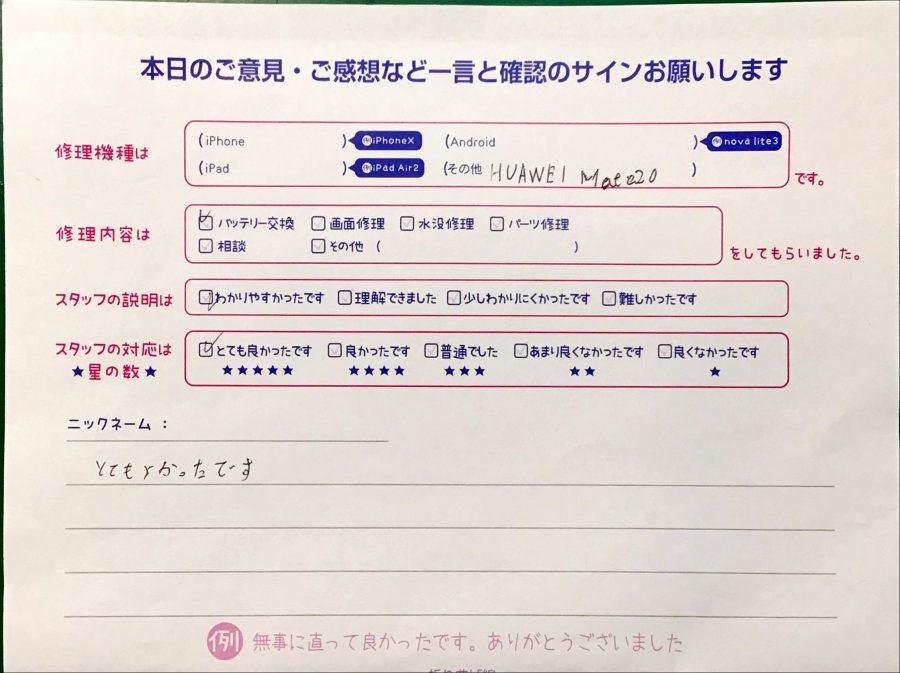 本日のご意見・ご感想など一言と確認のサインお願いします
修理機種は
(iPhone ) 例 iPhoneX (Android ) 例 nova lite3
(iPad ) 例 iPad Air2 (その他 HUAWEI Mate20 ) です。
修理内容は
バッテリー交換 画面修理 水没修理 パーツ修理
相談 その他 ( ) をしてもらいました。
スタッフの説明は わかりやすかったです 理解できました 少しわかりにくかったです 難しかったです
スタッフの対応は とても良かったです 良かったです 普通でした あまり良くなかったです 良くなかったです
★星の数★ ★★★★★ ★★★★ ★★★ ★★ ★
ニックネーム：
とてもよかったです
例 無事に直って良かったです。ありがとうございました